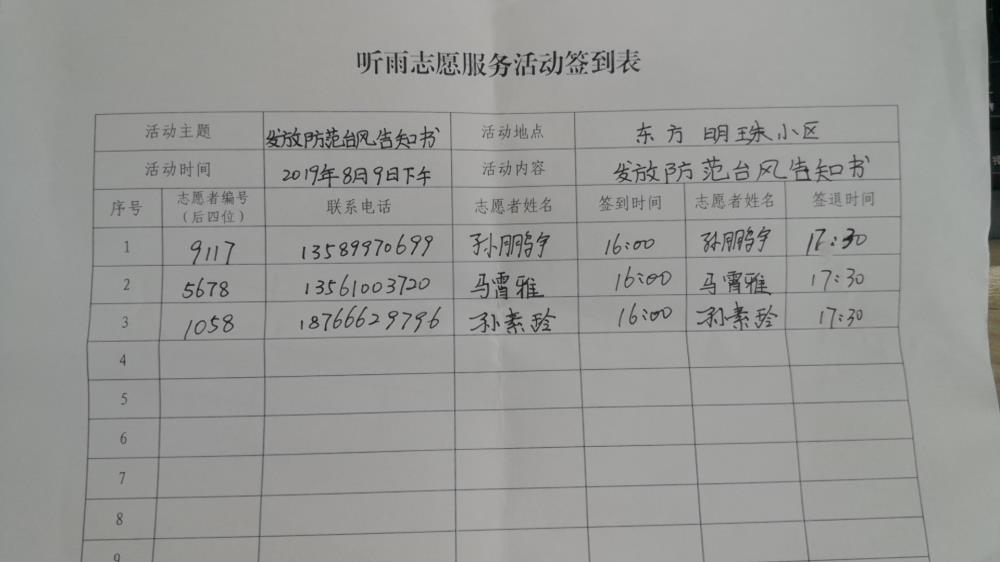 听雨志愿服务活动签到表
活动主题 发放防范台风告知书 活动地点 东方明珠小区
活动时间 2019年8月9日下午 活动内容 发放防范台风告知书
序号 志愿者编号（后四位） 联系电话 志愿者姓名 签到时间 志愿者姓名 签退时间
1 9117 13589970699 孙鹏宇 16:00 孙鹏宇 17:30
2 5678 13561003720 马霄雅 16:00 马霄雅 17:30
3 1058 18766629796 孙素玲 16:00 孙素玲 17:30
4
5
6
7
8
9